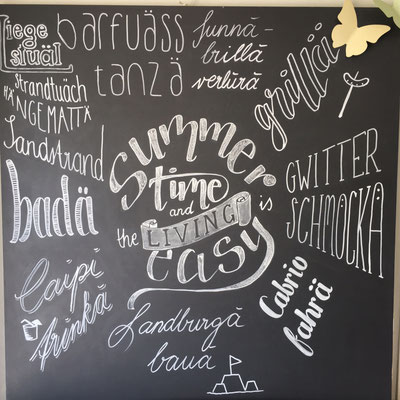 liege
stuäl
barfuäss
tanzä
Sunnä-
brillä
verlürä
grilliä
Strandtuäch
HÄNGEMATTÄ
Sandstrand
badä
Summer
time
and
the LIVING is
easy
GWITTER
SCHMOCKÄ
Caipi
trinkä
Cabrio
fahrä
Sandburgä
baua